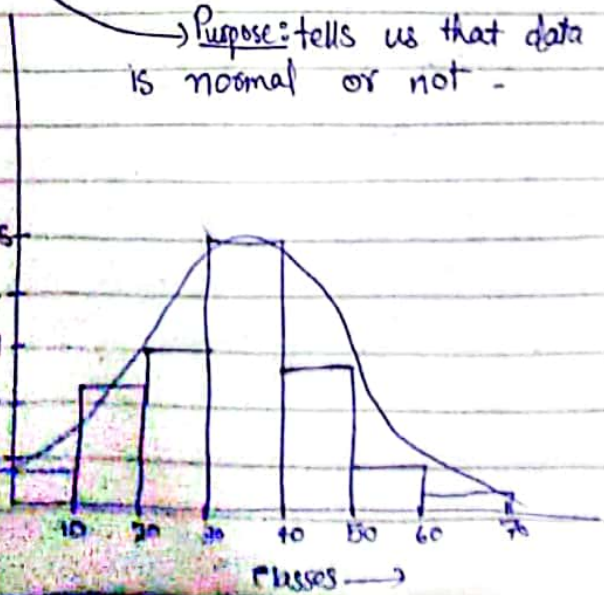 Purpose: tells us that data
is normal or not -
5
10 20 30 40 50 60 70
Classes